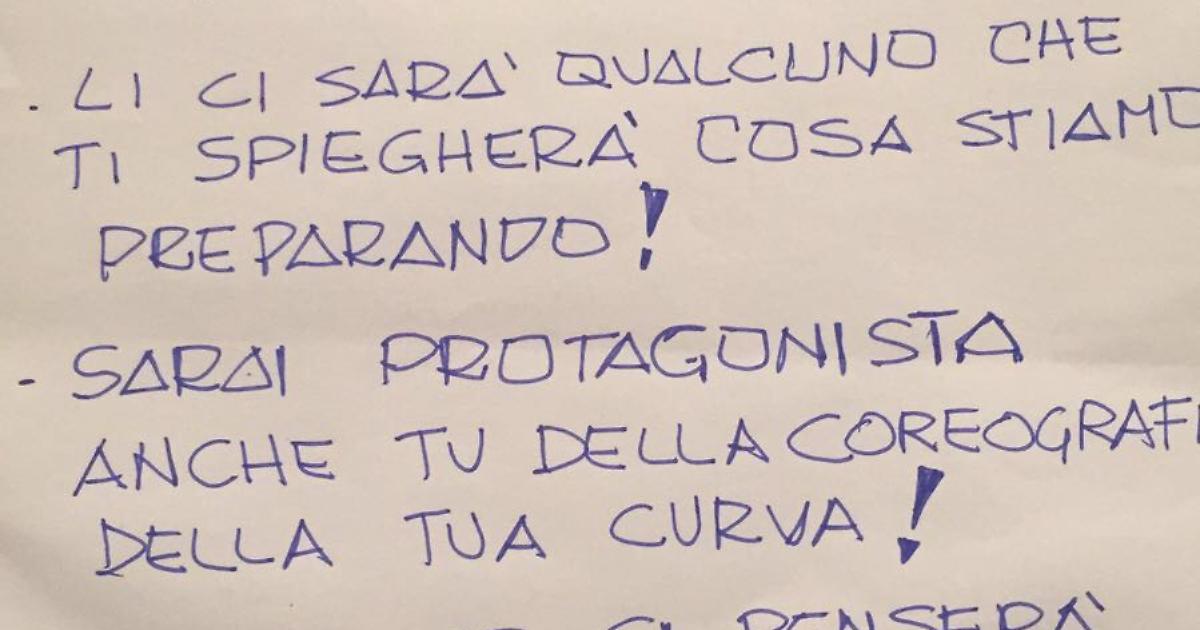 . LI CI SARA' QUALCUNO CHE
TI SPIEGHERA' COSA STIAMO
PREPARANDO!
- SARAI PROTAGONISTA
ANCHE TU DELLA COREOGRAFI
DELLA TUA CURVA!
CI PENSERA'